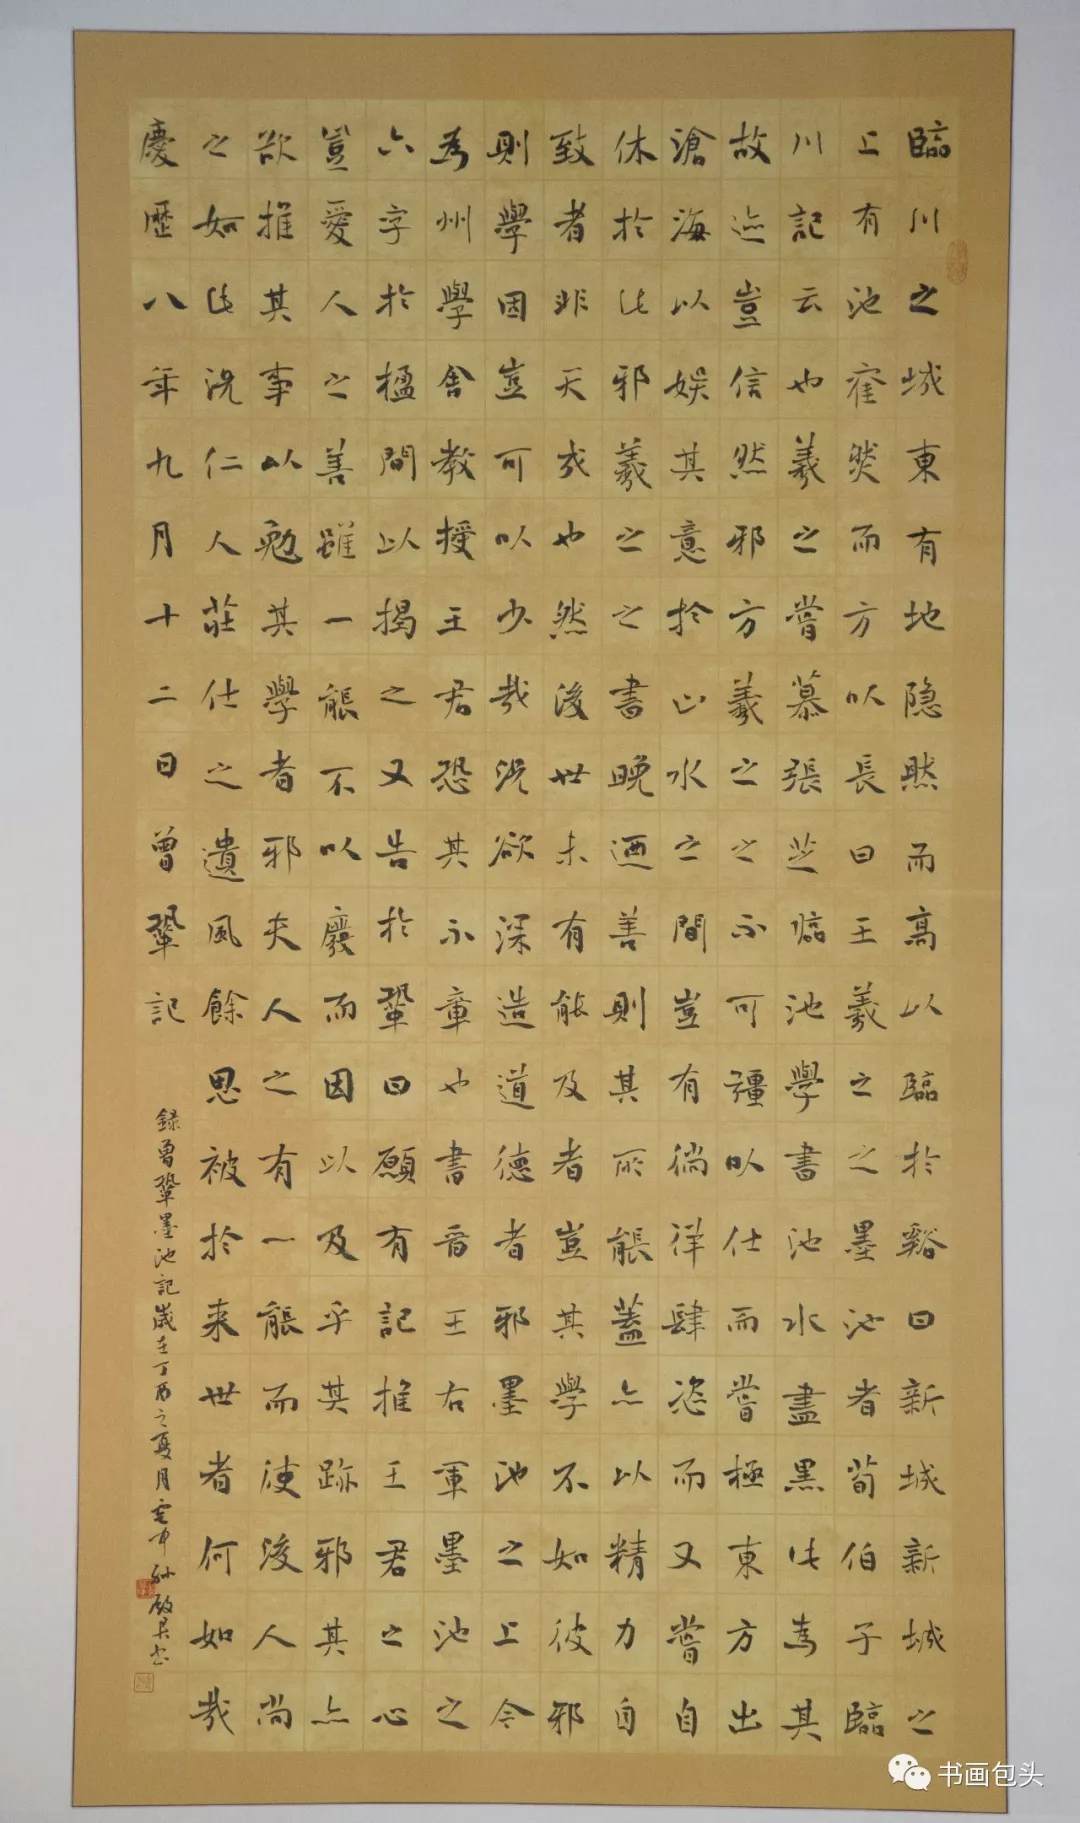 臨川之城東有地隐然而高以臨於谿曰新城新城之
上有池窪然而方以長曰王羲之之墨池者荀伯子臨
川記云也羲之嘗慕張芝臨池學書池水盡黑此為其
故迹豈信然邪方羲之之不可彊以仕而嘗極東方出
滄海以娱其意於山水之間豈有徜徉肆恣而又嘗自
休於此邪羲之之書晚迺善則其所能蓋亦以精力自
致者非天成也然後世未有能及者豈其學不如彼邪
則學固豈可以少哉況欲深造道德者邪墨池之上今
為州學舍教授王君恐其不章也書晉王右軍墨池之
六字於楹間以揭之又告於鞏曰願有記推王君之心
豈愛人之善雖一能不以廢而因以及乎其跡邪其亦
欲推其事以勉其學者邪夫人之有一能而使後人尚
之如此況仁人莊仕之遺風餘思被於来世者何如哉
慶歷八年九月十二日曾鞏記
録曾鞏墨池記歲在丁酉之夏月
书画包头